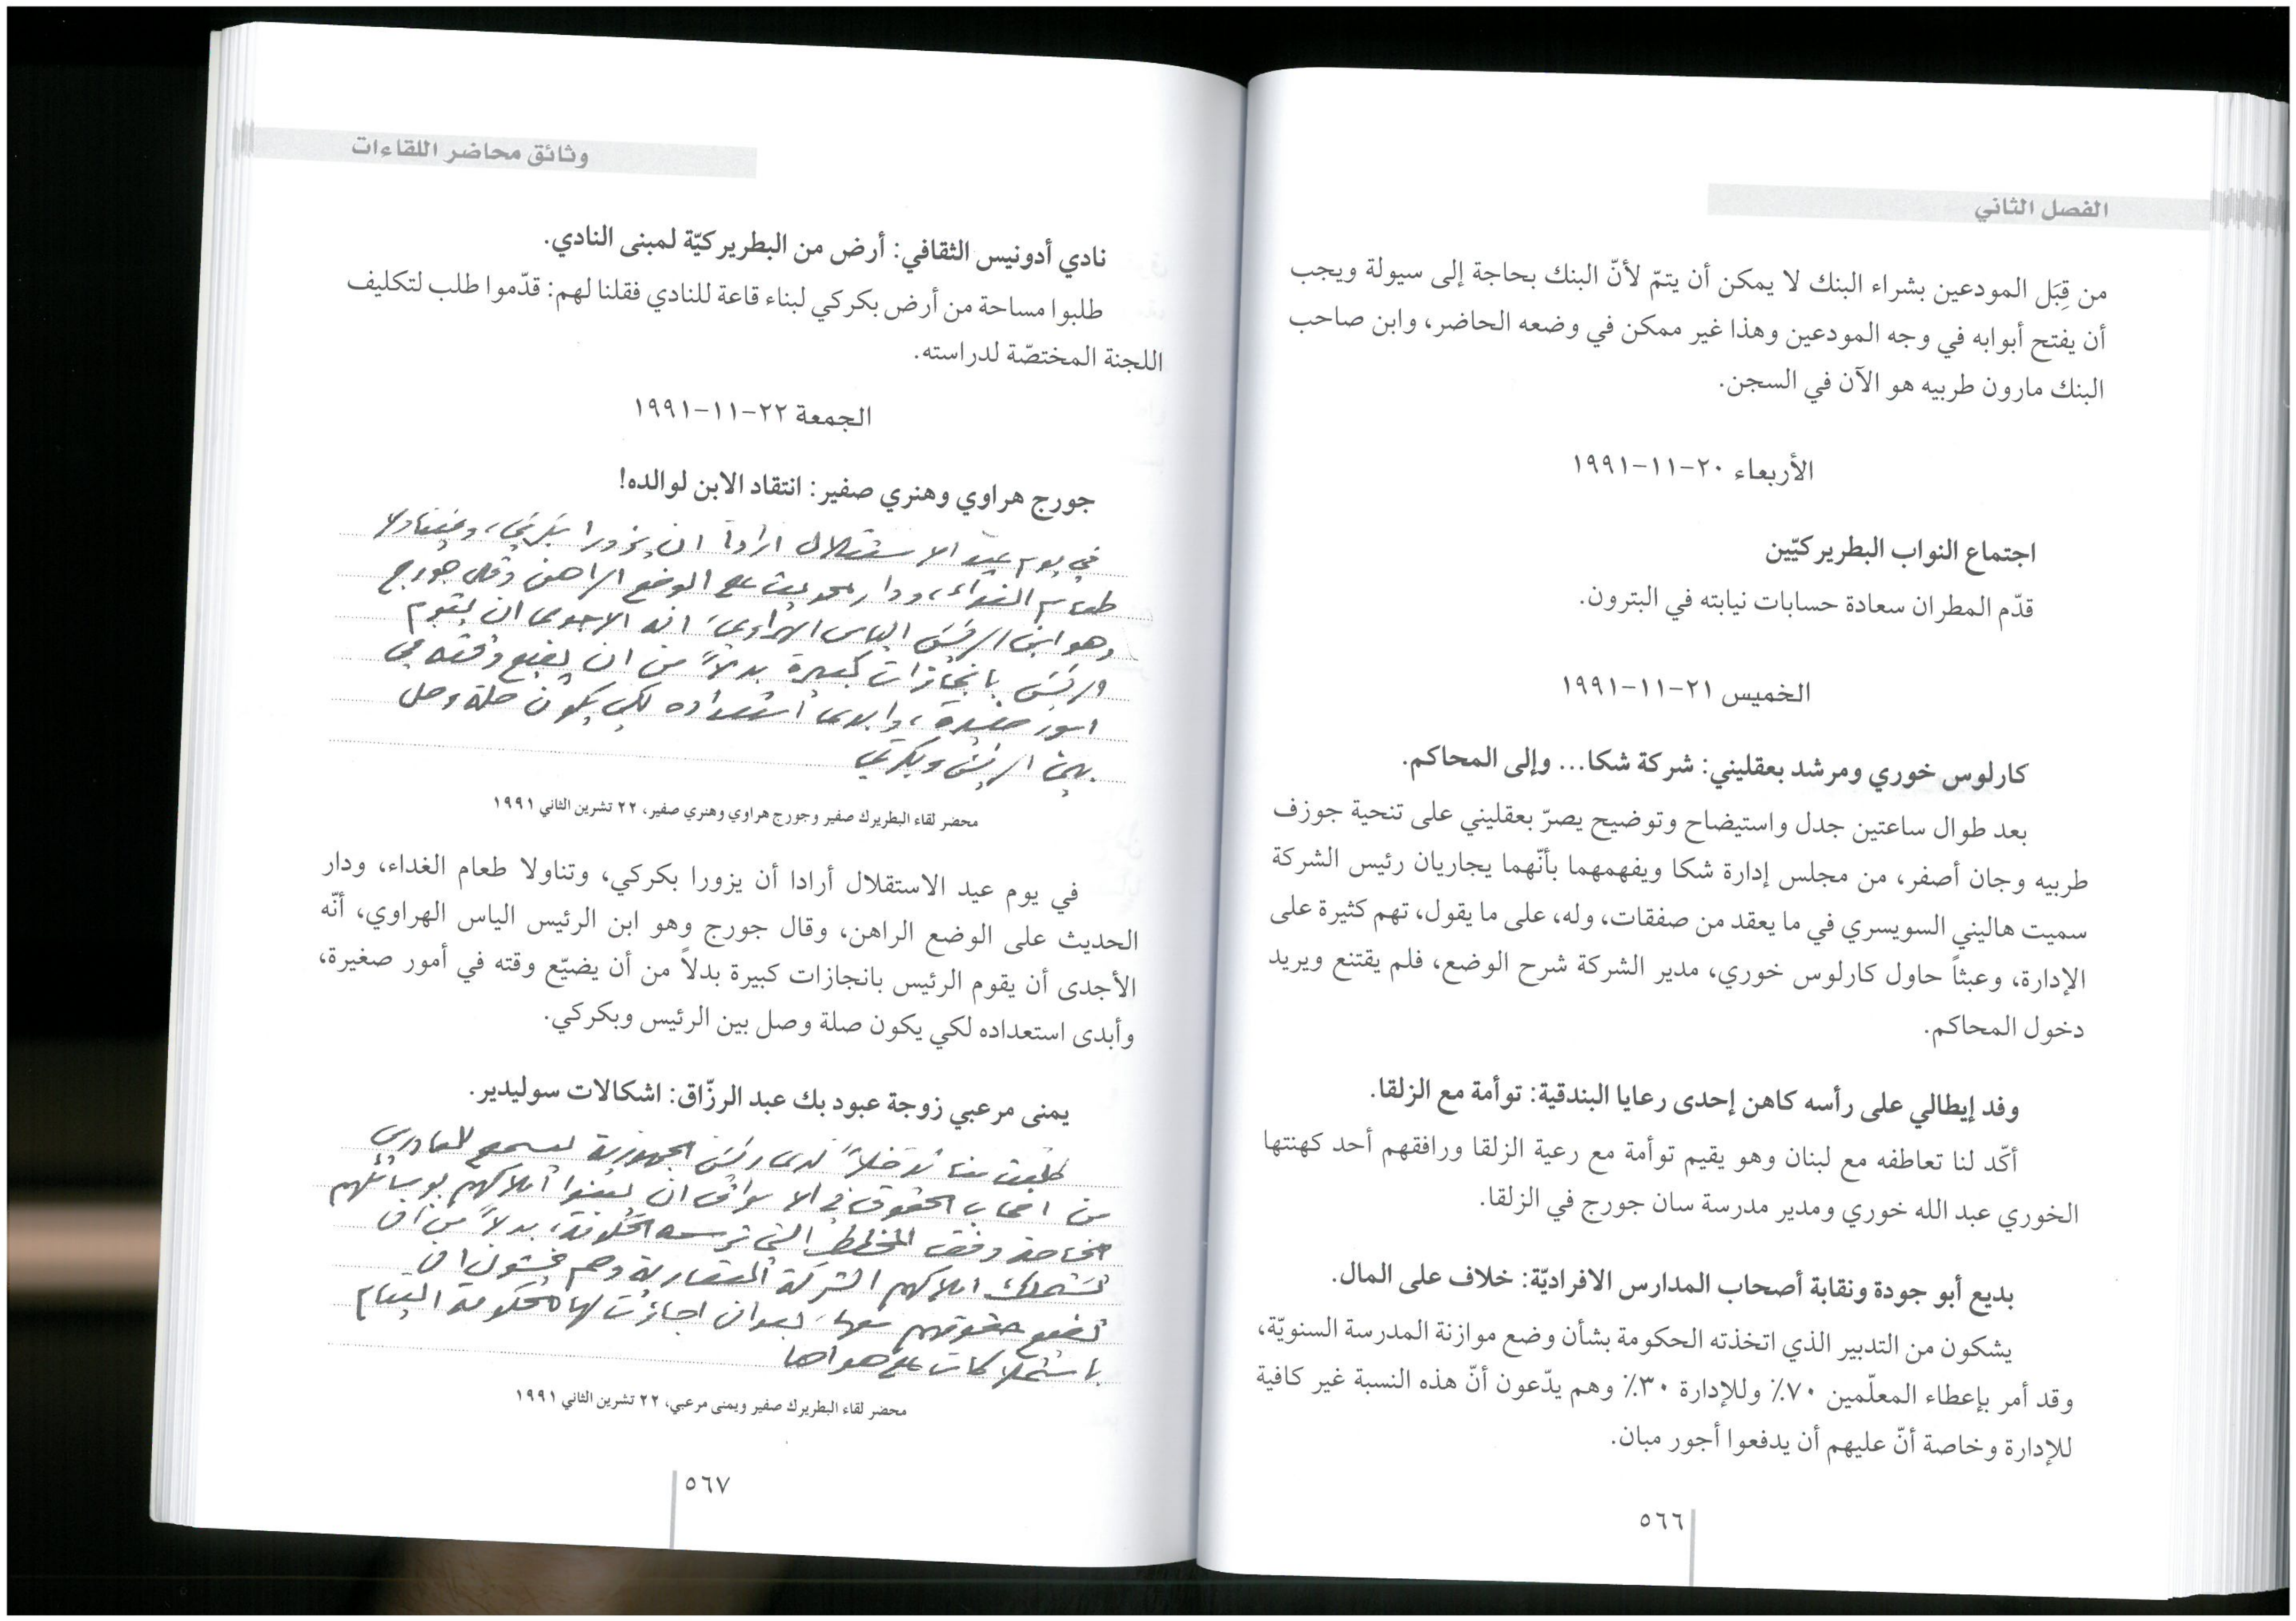 الفصل الثاني
من قِبَل المودعين بشراء البنك لا يمكن أن يتمّ لأنّ البنك بحاجة إلى سيولة ويجب
أن يفتح أبوابه في وجه المودعين وهذا غير ممكن في وضعه الحاضر، وابن صاحب
البنك مارون طربيه هو الآن في السجن.
الأربعاء ٢٠-١١-١٩٩١
اجتماع النواب البطريركيّين
قدّم المطران سعادة حسابات نيابته في البترون.
الخميس ٢١-١١-١٩٩١
كارلوس خوري ومرشد بعقليني: شركة شكا... وإلى المحاكم.
بعد طوال ساعتين جدل واستيضاح وتوضيح يصرّ بعقليني على تنحية جوزف
طربيه وجان أصفر، من مجلس إدارة شكا ويفهمهما بأنّهما يجاريان رئيس الشركة
سميت هاليني السويسري في ما يعقد من صفقات، وله، على ما يقول، تهم كثيرة على
الإدارة، وعبثاً حاول كارلوس خوري، مدير الشركة شرح الوضع، فلم يقتنع ويريد
دخول المحاكم.
وفد إيطالي على رأسه كاهن إحدى رعايا البندقية: توأمة مع الزلقا.
أكّد لنا تعاطفه مع لبنان وهو يقيم توأمة مع رعية الزلقا ورافقهم أحد كهنتها
الخوري عبد الله خوري ومدير مدرسة سان جورج في الزلقا.
بديع أبو جودة ونقابة أصحاب المدارس الافراديّة: خلاف على المال.
يشكون من التدبير الذي اتخذته الحكومة بشأن وضع موازنة المدرسة السنويّة،
وقد أمر بإعطاء المعلّمين ٧٠٪ وللإدارة ٣٠٪ وهم يدّعون أنّ هذه النسبة غير كافية
للإدارة وخاصة أنّ عليهم أن يدفعوا أجور مبان.
٥٦٦
وثائق محاضر اللقاءات
نادي أدونيس الثقافي: أرض من البطريركيّة لمبنى النادي.
طلبوا مساحة من أرض بكركي لبناء قاعة للنادي فقلنا لهم: قدّموا طلب لتكليف
اللجنة المختصّة لدراسته.
الجمعة ٢٢-١١-١٩٩١
جورج هراوي وهنري صفير: انتقاد الابن لوالده!
في يوم عيد الاستقلال ارادا ان يزورا بكركي، وتناولا
طعام الغداء، ودار الحديث على الوضع الراهن وقال جورج
وهو ابن الرئيس الياس الهراوي، انه الاجدى ان يقوم
الرئيس بانجازات كبيرة بدلاً من ان يضيع وقته في
امور صغيرة، وابدى استعداده لكي يكون صلة وصل
بين الرئيس وبكركي
محضر لقاء البطريرك صفير وجورج هراوي وهنري صفير، ٢٢ تشرين الثاني ١٩٩١
في يوم عيد الاستقلال أرادا أن يزورا بكركي، وتناولا طعام الغداء، ودار
الحديث على الوضع الراهن، وقال جورج وهو ابن الرئيس الياس الهراوي، أنّه
الأجدى أن يقوم الرئيس بانجازات كبيرة بدلاً من أن يضيّع وقته في أمور صغيرة،
وأبدى استعداده لكي يكون صلة وصل بين الرئيس وبكركي.
يمنى مرعبي زوجة عبود بك عبد الرزّاق: اشكالات سوليدير.
طلبت منا تدخلاً لدى رئيس الجمهورية ليسمح للقادرين
من اصحاب الحقوق في الاسواق ان يبنوا املاكهم بوسائلهم
الخاصة وفق المخطط التي ترسمه الحكومة، بدلاً من ان
تستملك املاكهم الشركة العقارية وهم يخشون ان
تضيع حقوقهم معها، بعد ان اجازت لها الحكومة القيام
باستملاكات على هواها
محضر لقاء البطريرك صفير ويمنى مرعبي، ٢٢ تشرين الثاني ١٩٩١
٥٦٧